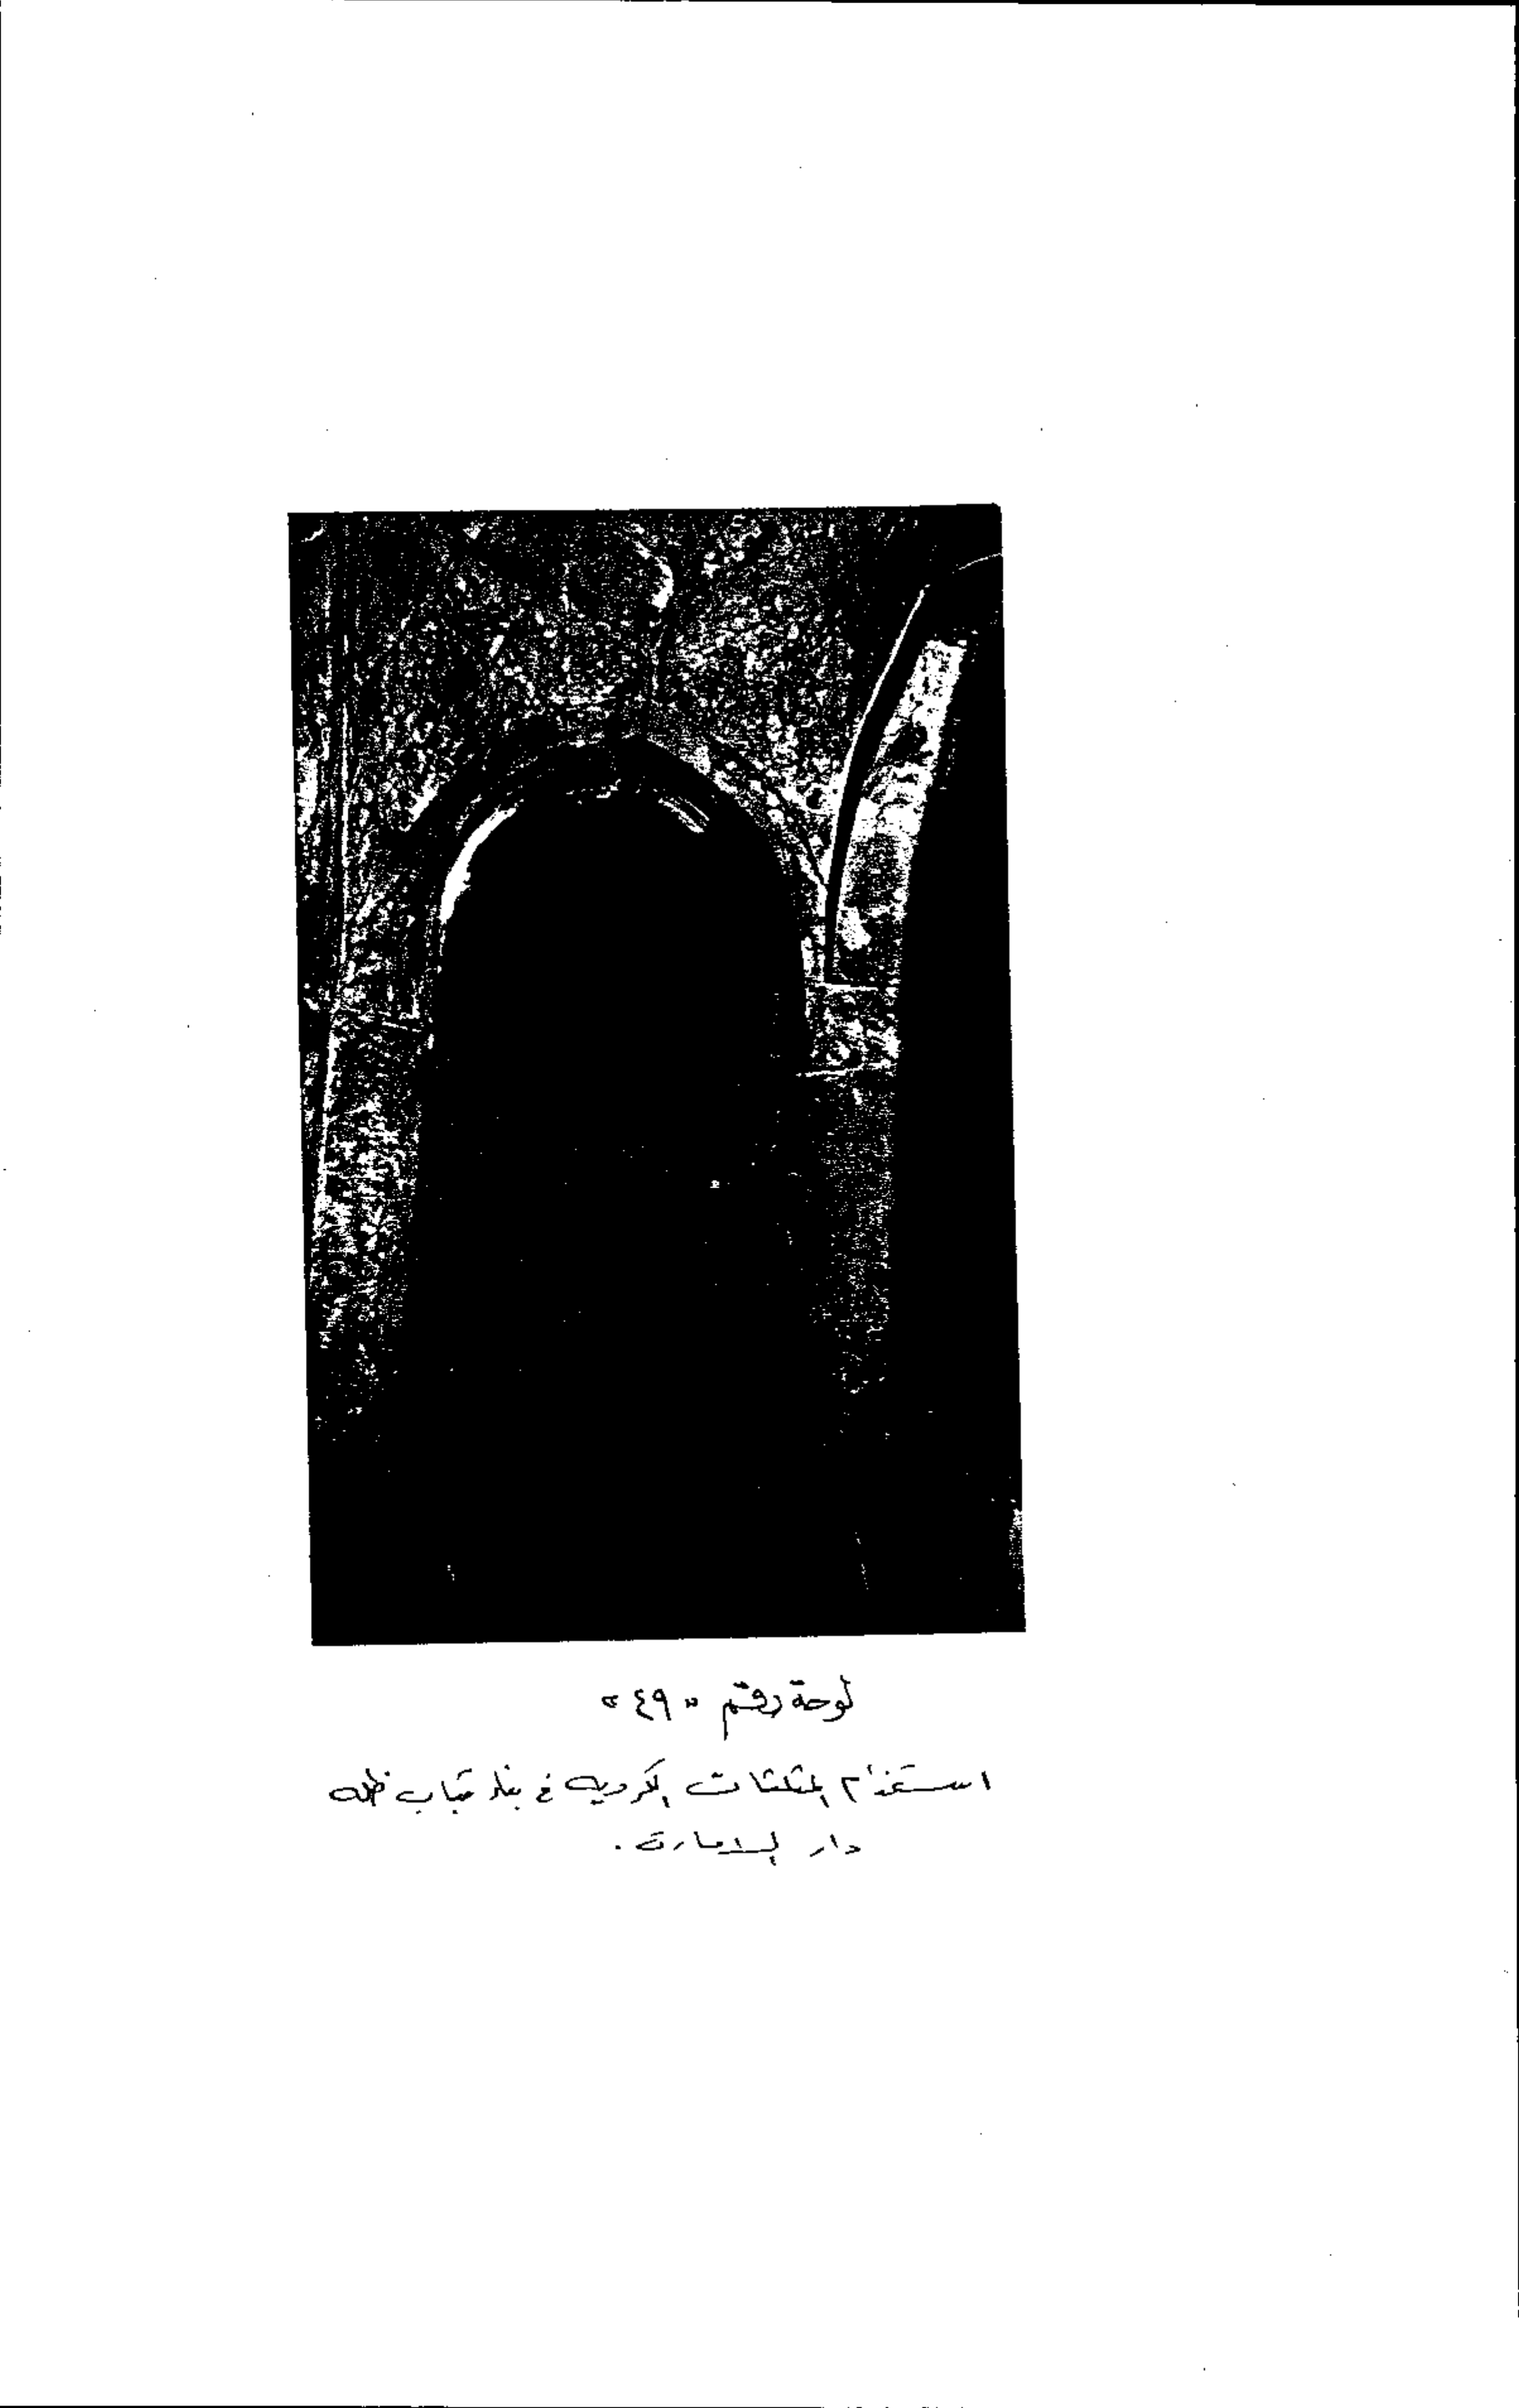 لوحة رقم "٤٩"
استخدام المثلثات الكروية في نقل قباب
دار الامارة .